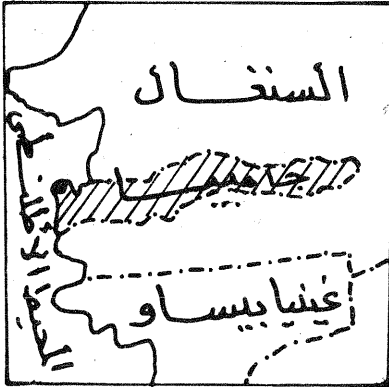 السنغال
جمبيا
غينيا بيساو
المحيط الأطلنطي